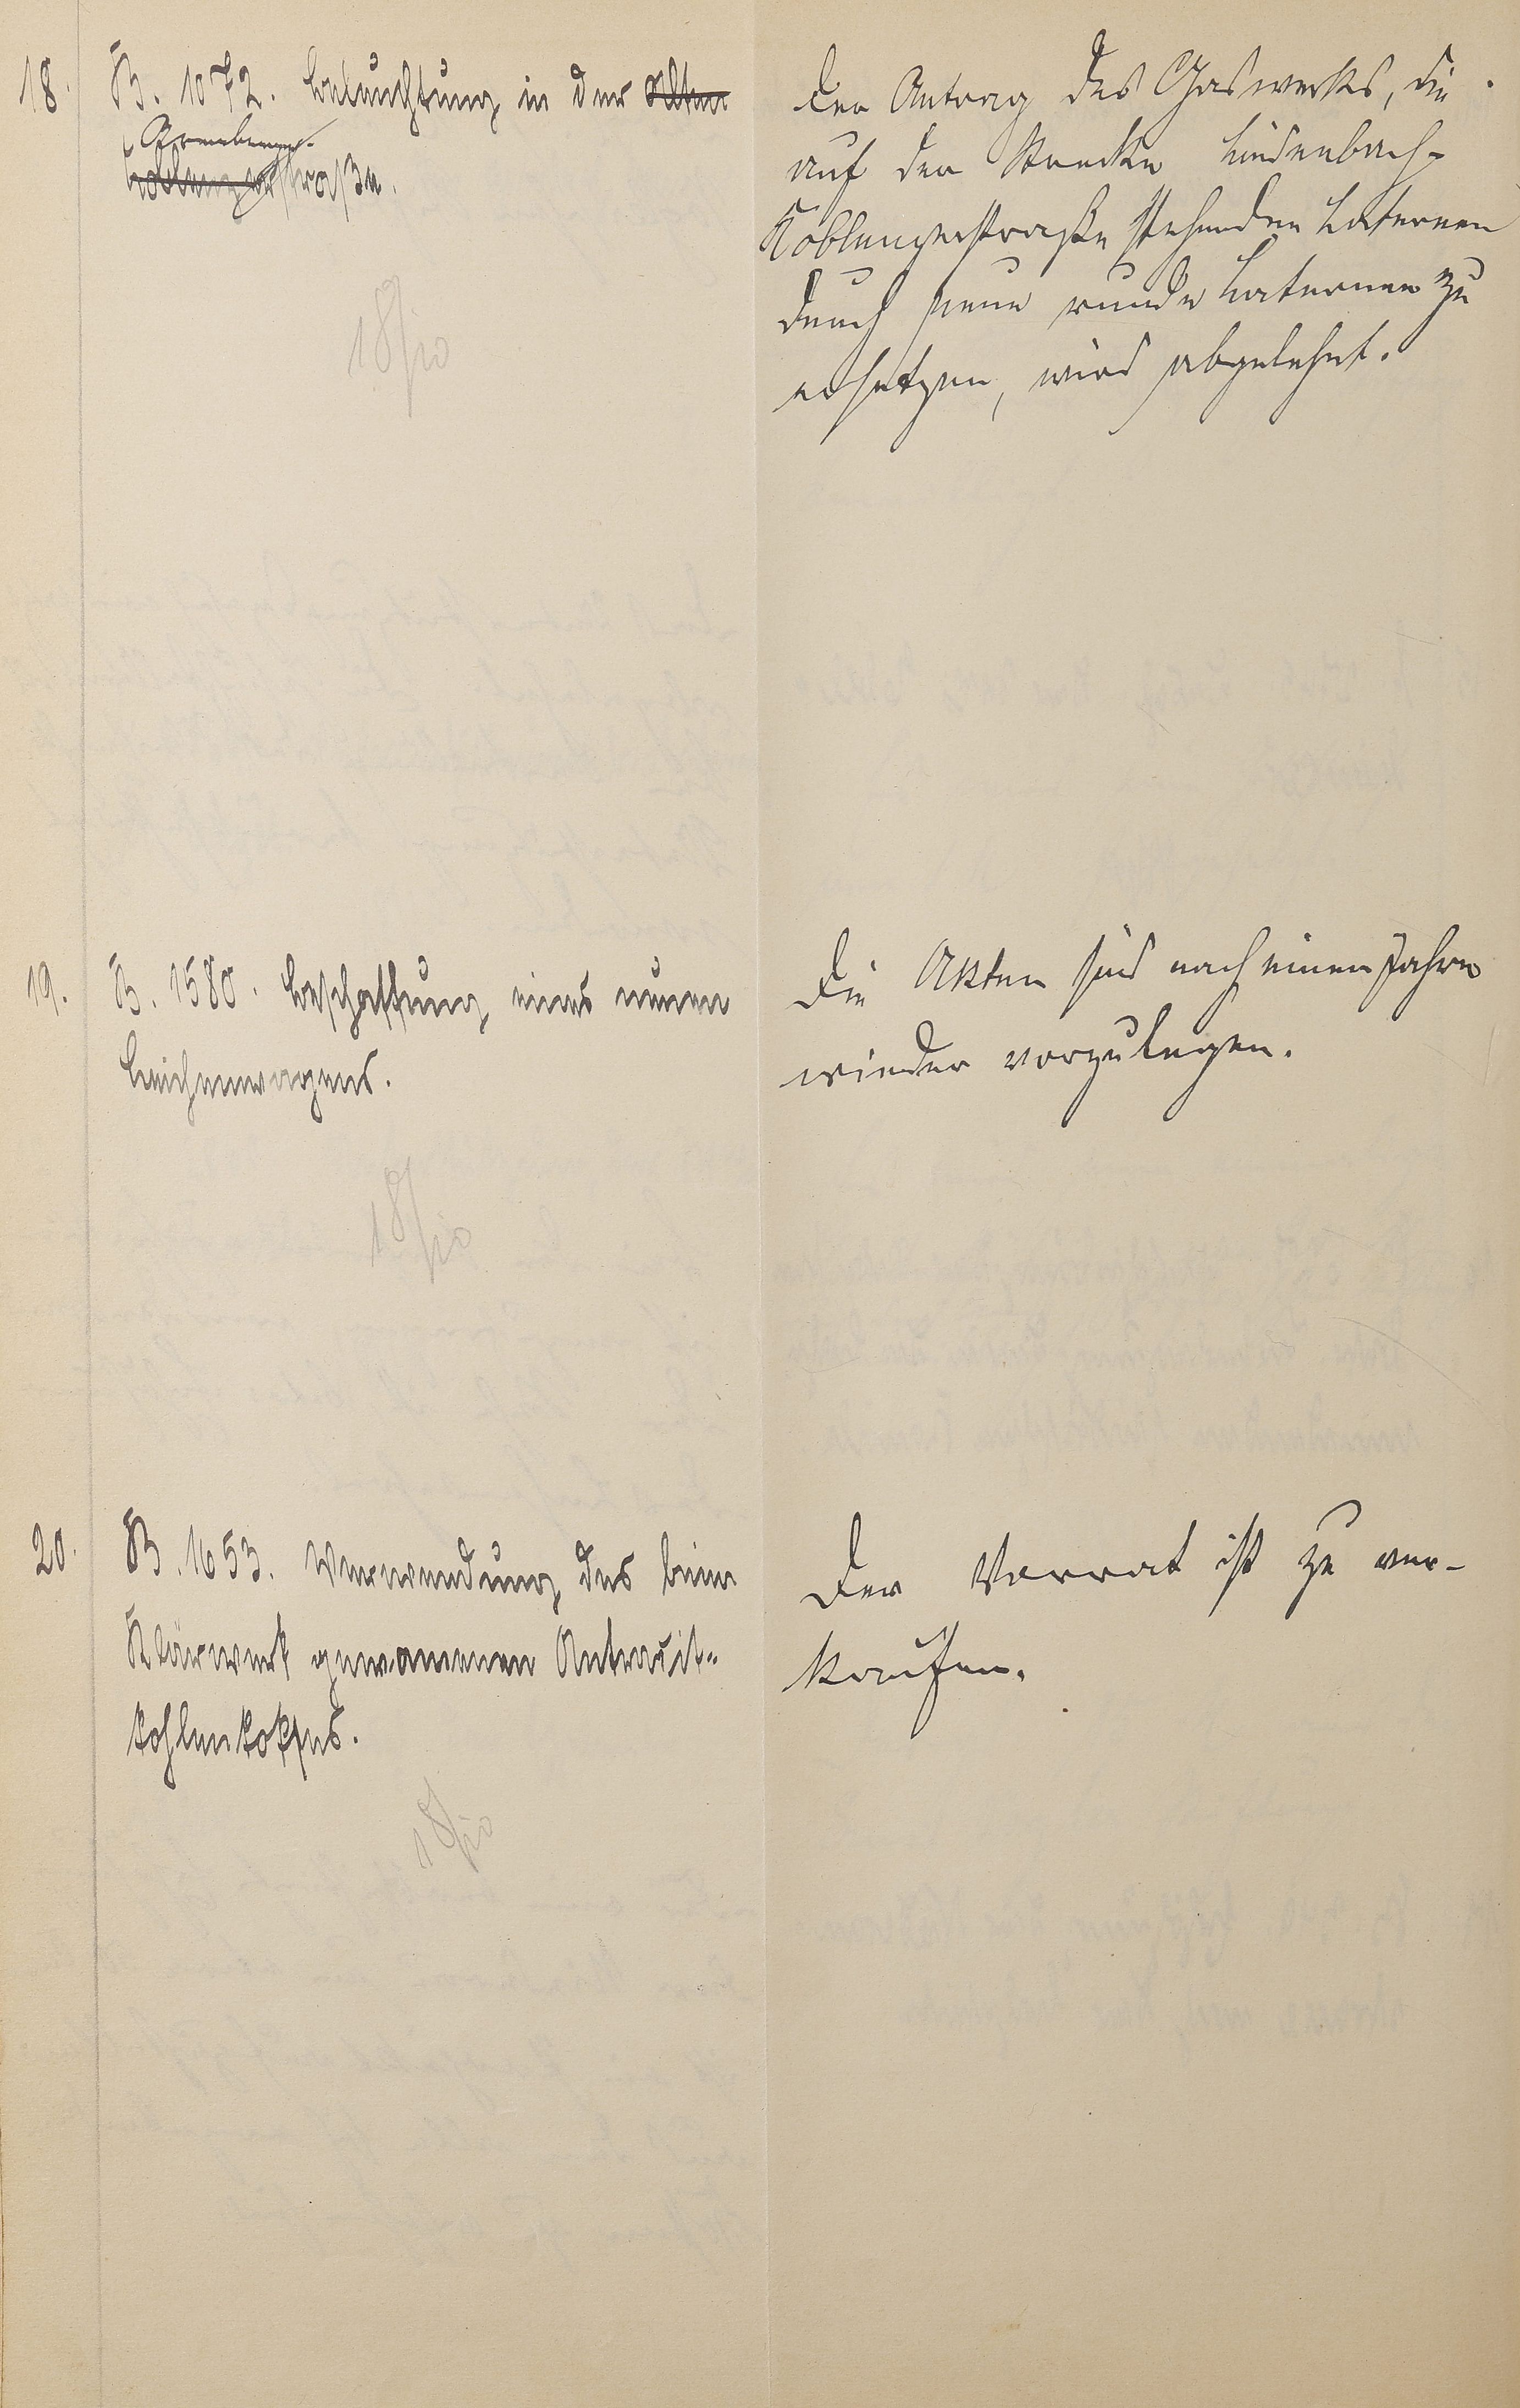 18. B. 1072. Beleuchtung in der alten
Arenberger-
Koblenzerstraße.
18/10
Der Antrag des Gaswerks, die
auf der Strecke Lindenbach-
Koblenzerstraße stehenden Laternen
durch neue runde Laternen zu
ersetzen, wird abgelehnt.
19. B. 1580. Beschaffung eines neuen
Leichenwagens.
18/10
Die Akten sind nach einem Jahre
wieder vorzulegen.
20. B. 1653. Verwendung des beim
Klärwerk gewonnenen Antrazit-
kohlenkokses.
18/10
Der Vorrat ist zu ver-
kaufen.